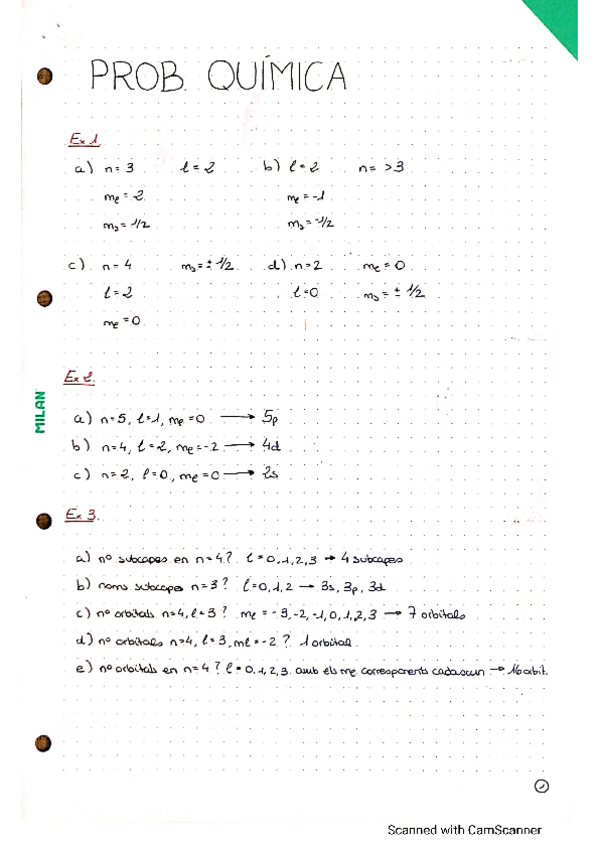 PROB. QUÍMICA
Ex 1.
a) n = 3 l = 2 b) l = 2 n = >3
me = -2 me = -1
ms = 1/2 ms = -1/2
c) n = 4 ms = ± 1/2 d) n = 2 me = 0
l = 2 l = 0 ms = ± 1/2
me = 0
Ex 2.
a) n = 5, l = 1, me = 0 → 5p
b) n = 4, l = 2, me = -2 → 4d
c) n = 2, l = 0, me = 0 → 2s
Ex 3.
a) nº subcapes en n = 4? l = 0, 1, 2, 3 → 4 subcapes
b) noms subcapes n = 3? l = 0, 1, 2 → 3s, 3p, 3d
c) nº orbitals n=4, l = 3? me = -3, -2, -1, 0, 1, 2, 3 → 7 orbitals
d) nº orbitals n=4, l = 3, ml = -2? 1 orbital
e) nº orbitals en n = 4? l = 0, 1, 2, 3 amb els me corresponents cadascun → 16 orbit.
MILAN
Scanned with CamScanner